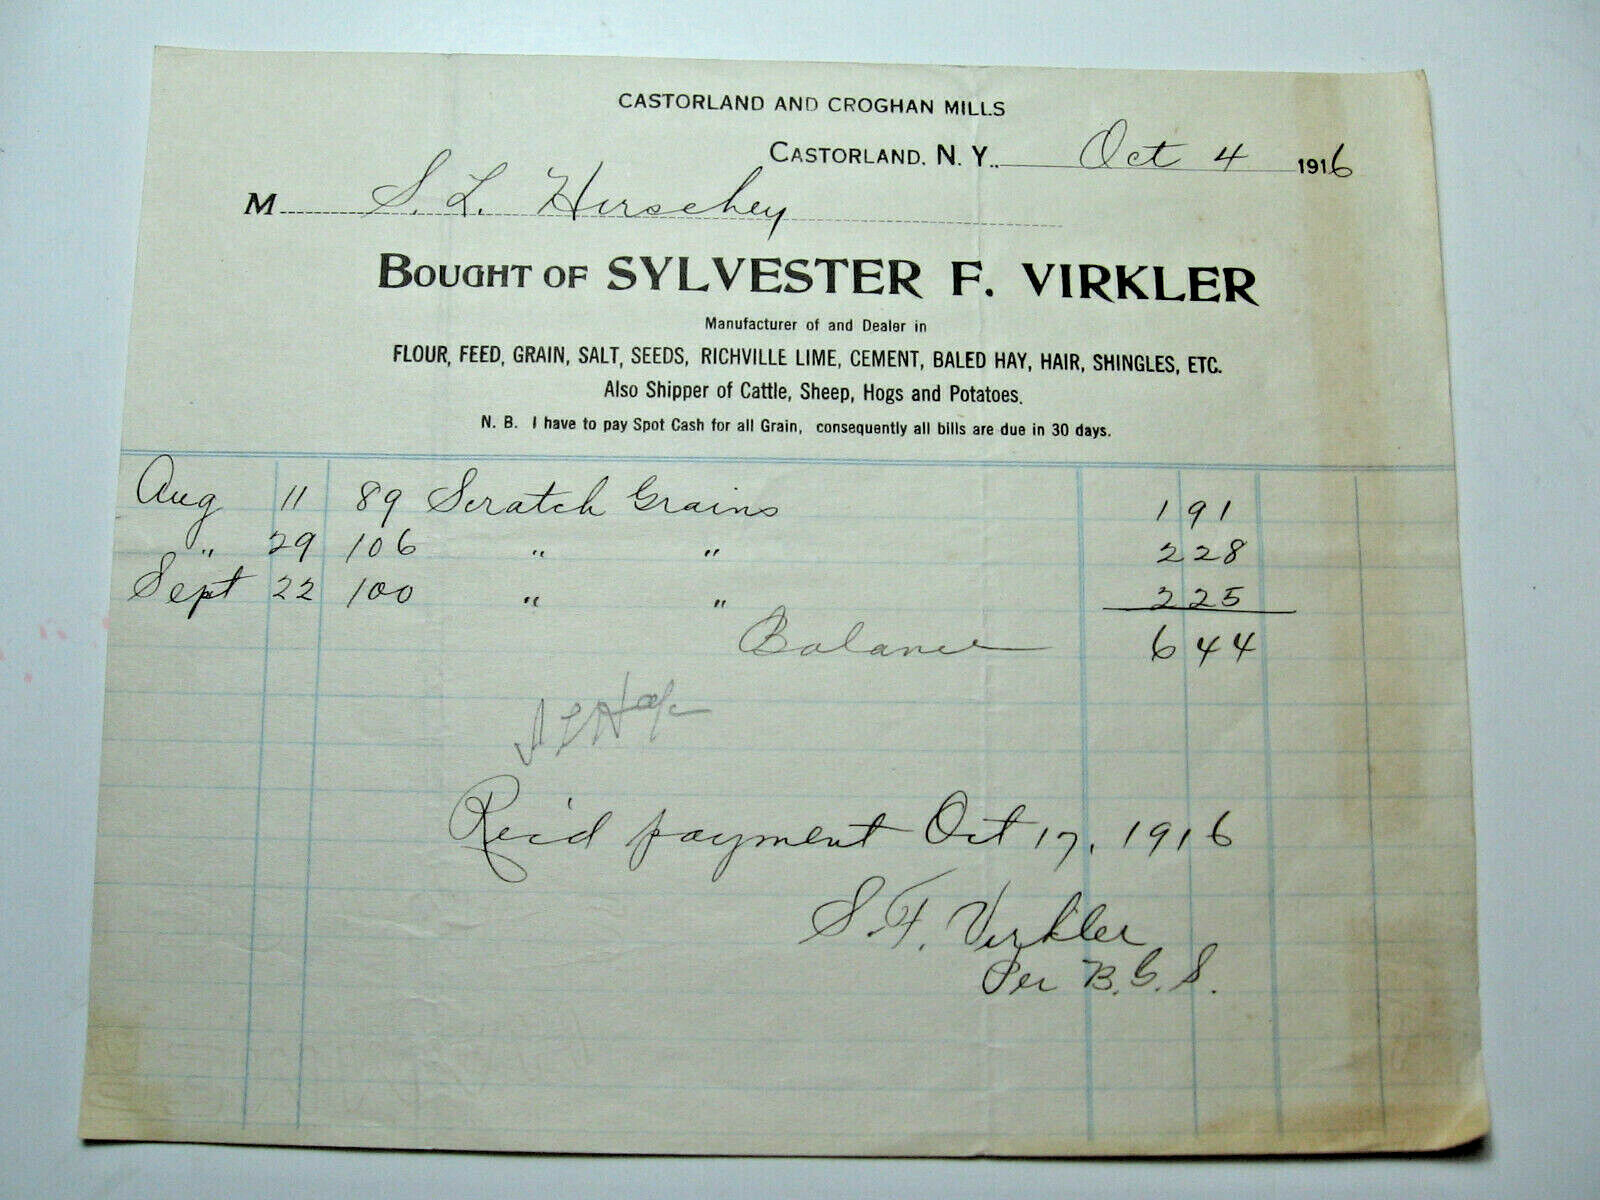 CASTORLAND AND CROGHAN MILLS
CASTORLAND, N. Y. Oct 4 1916
M S. L. Hirschey
BOUGHT OF SYLVESTER F. VIRKLER
Manufacturer of and Dealer in
FLOUR, FEED, GRAIN, SALT, SEEDS, RICHVILLE LIME, CEMENT, BALED HAY, HAIR, SHINGLES, ETC.
Also Shipper of Cattle, Sheep, Hogs and Potatoes.
N. B. I have to pay Spot Cash for all Grain, consequently all bills are due in 30 days.
Aug 11 89 Scratch Grains 1 91
" 29 106 " " 2 28
Sept 22 100 " " 2 25
Balance 6 44
Rec'd payment Oct 17, 1916
S. F. Virkler
Per B. G. S.